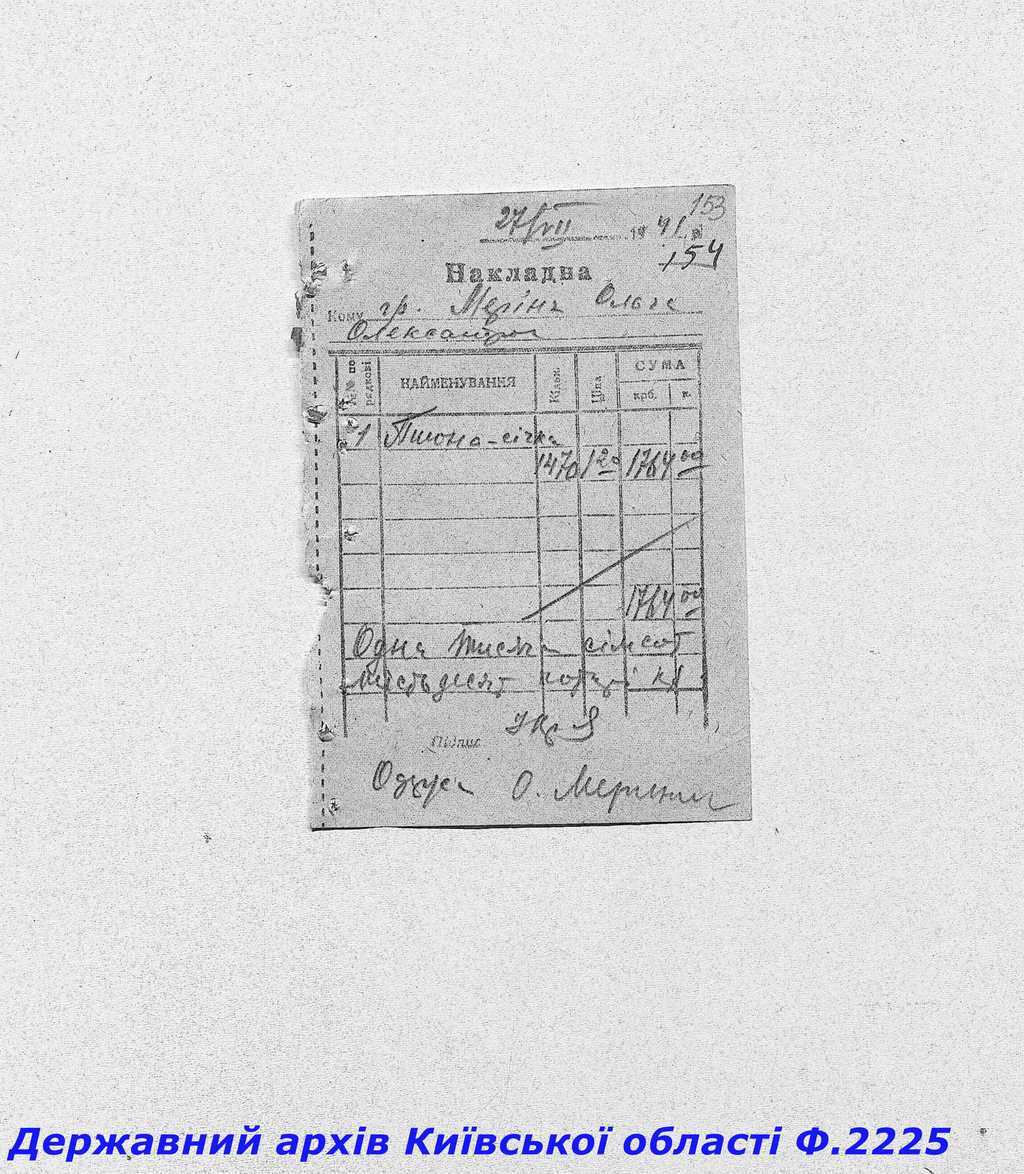 153
27/VII 1941 р
154
Накладна
Кому гр. Ольга
№№ по рядкові НАЙМЕНУВАННЯ Кільк. Ціна СУМА
крб. к.
1 Пшоно-січка
1470 1 20 1764 00
1764 00
Одна тисяча сімсот
шістьдесят чотирі кр
Підпис
О.
Державний архів Київської області Ф.2225